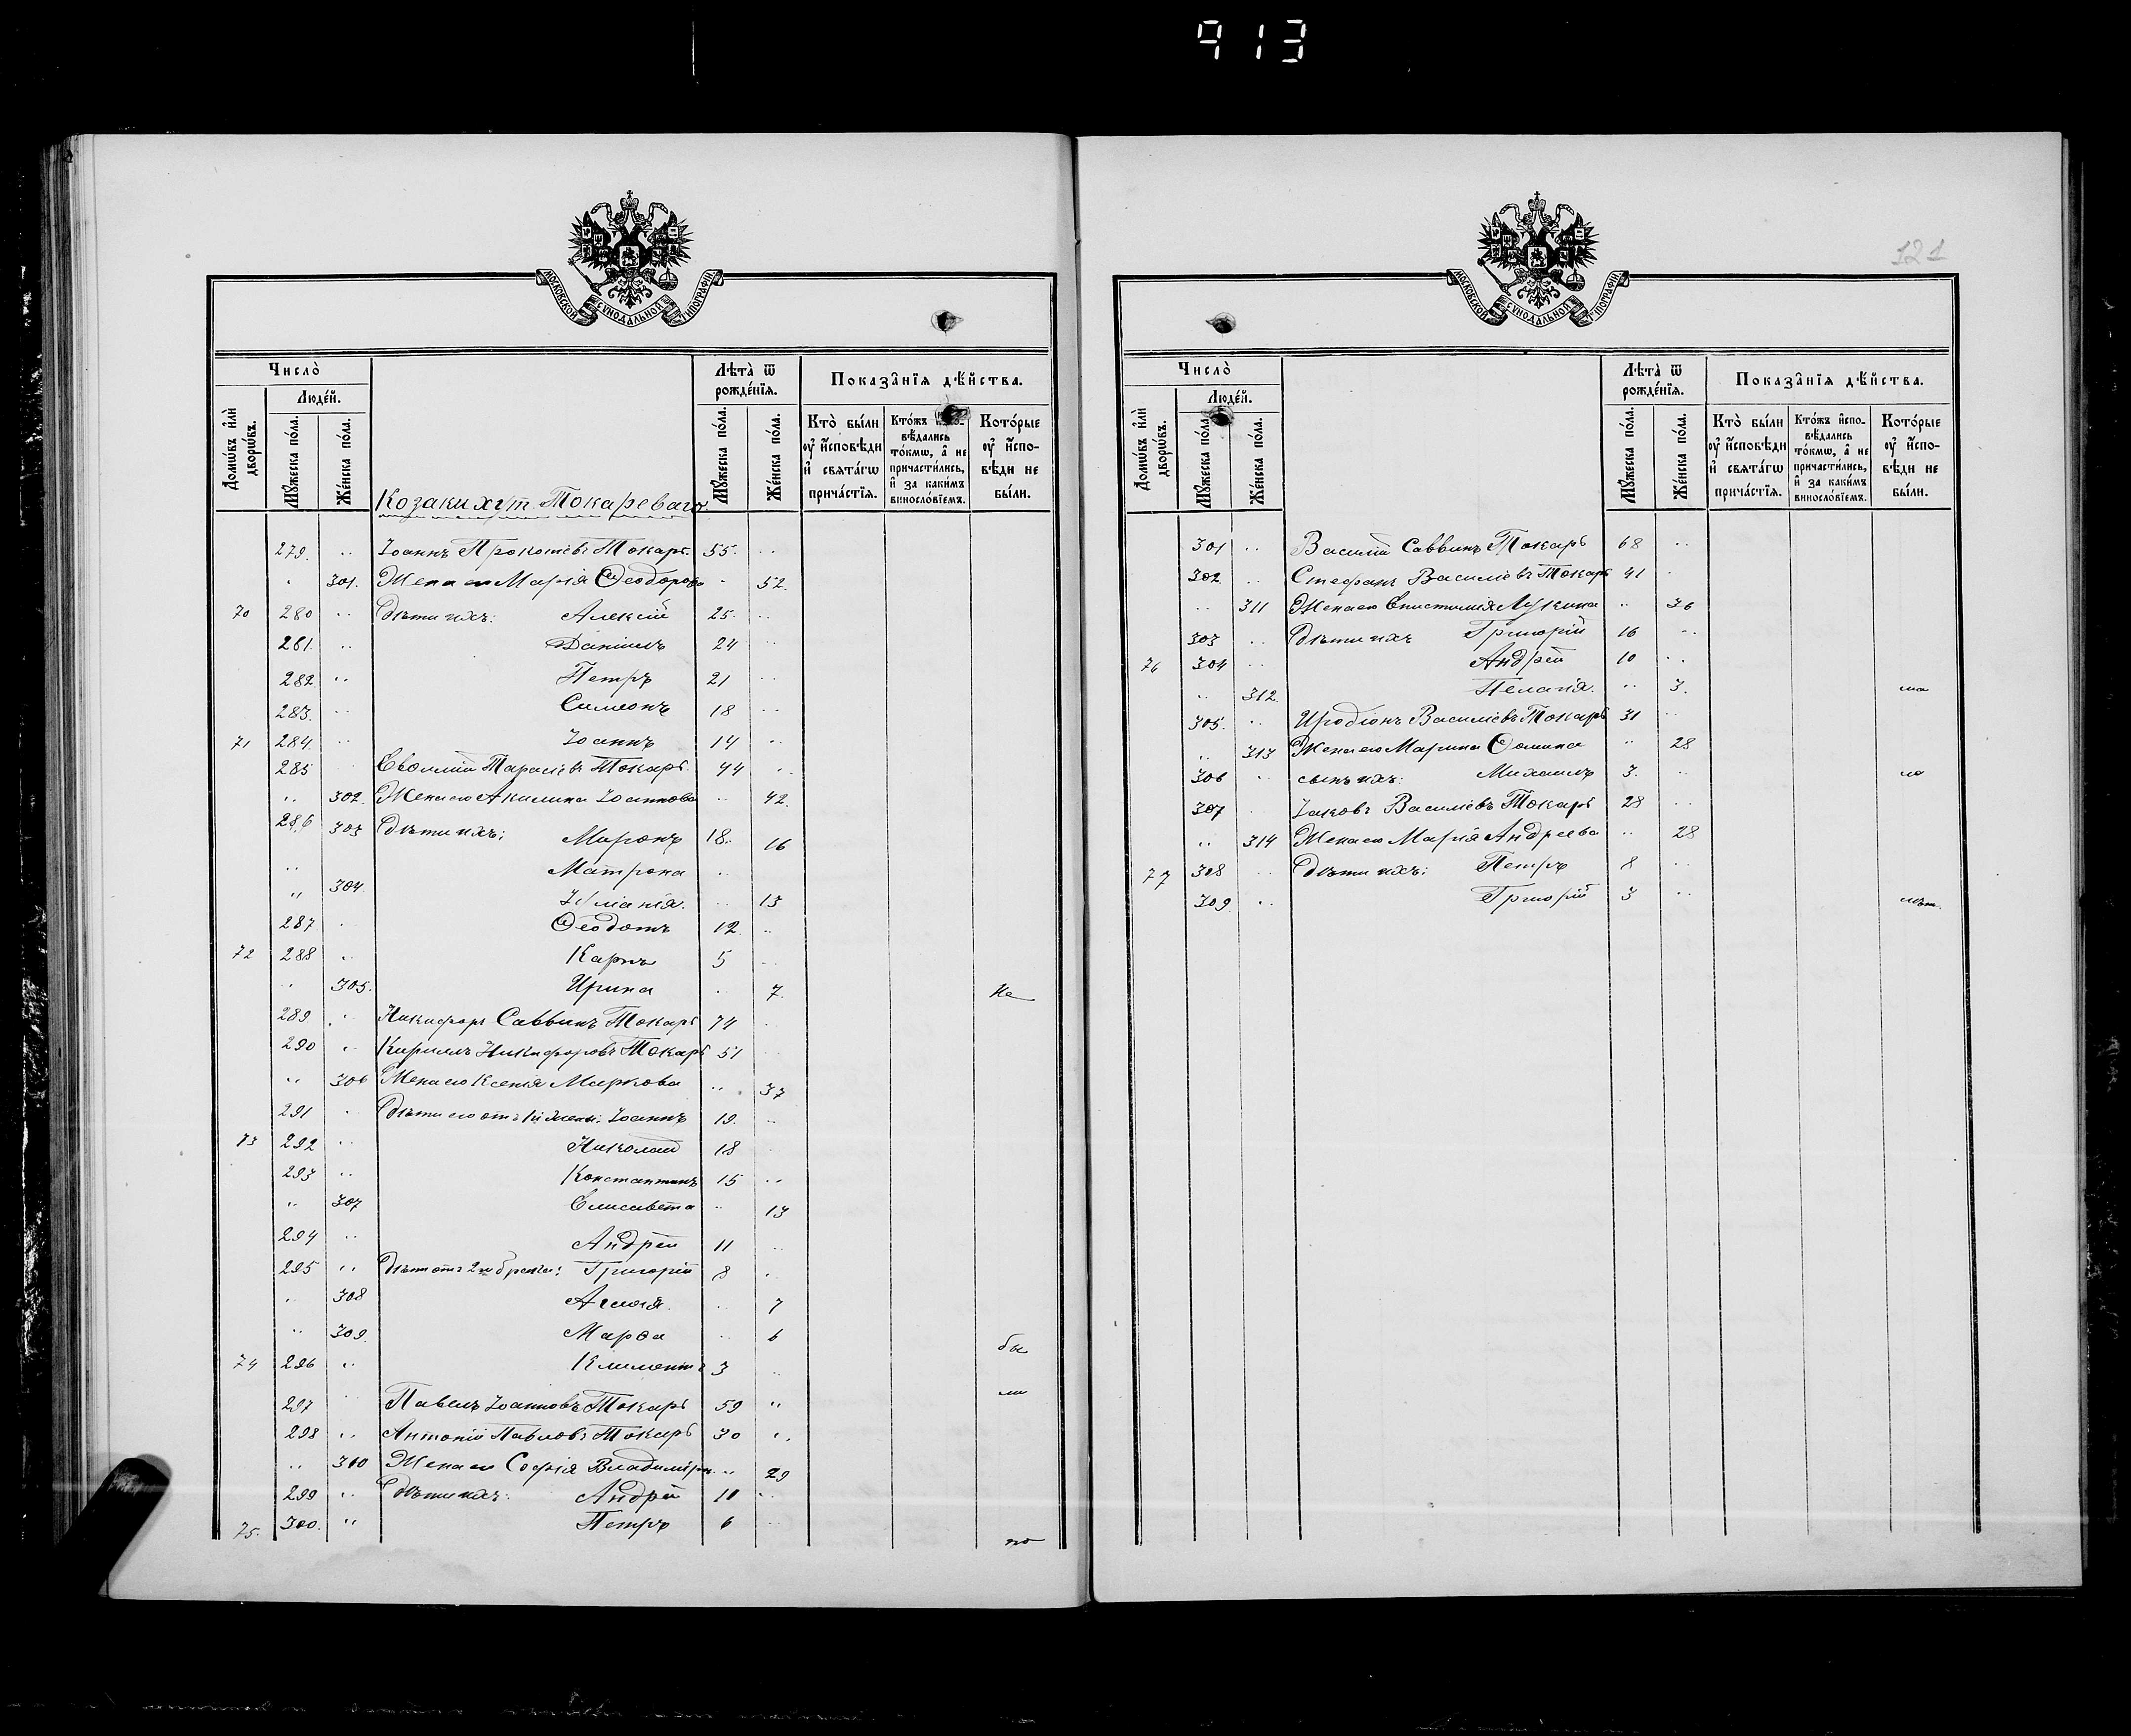 913
121
МОСКОВСКОЙ СѴНОДАЛЬНОЙ ТИПОГРАФІИ
Число̀
Людéй.
Домѡ́въ и҆лѝ дворѡ́въ.
Мꙋ́жеска по́ла.
Же́нска по́ла.
Лѣ́та ѿ рожде́нїѧ.
Мꙋ́жеска по́ла.
Же́нска по́ла.
Показа̑нїѧ дѣ́йства.
Кто̀ бы́ли ᲂу҆ и҆сповѣди и҆ свѧта́гѡ прича́стїѧ.
Кто́жъ и҆спо-вѣ́дались то́кмѡ, а҆ не причасти́лись, и҆ за каки́мъ винословїемъ.
Кото́рые ᲂу҆ и҆спо-вѣди не бы́ли.
Козаки хут. Токареваго
279. Іоаннъ Прокопіевъ Токарь. 55.
301. Жена его Марія Ѳеодорова 52.
70 280 Дѣти ихъ: Алексій 25.
281. Даніилъ 24
282. Петръ 21
283. Симеонъ 18
71 284. Іоаннъ 14
285 Евѳимій Тарасіевъ Токарь. 44
302. Жена его Акилина Іоаннова 42.
286 303 Дѣти ихъ: Миронъ 18. 16
Матрона
304. Іуліанія. 13
287 Ѳеодотъ 12.
72 288 Карпъ 5
305. Ирина 7. не
289 Никифоръ Саввинъ Токарь 74
290 Кириллъ Никифоровъ Токарь 51
306 Жена его Ксенія Маркова 37
291 Дѣти его отъ 1й жены: Іоаннъ 19.
73 292 Николай 18
293 Константинъ 15
307 Елисавета 13
294 Андрей 11
295 Дѣти отъ 2го брака: Григорій 8
308 7
309. Марѳа 6 бы
74 296 Климентъ 3
ли
297 Павелъ Іоанновъ Токарь 59
298 Антоній Павловъ Токарь 30
310 Жена его Софія Владимірова 29
299 Дѣти ихъ: Андрей 10
75. 300. Петръ 6
по
Число̀
Людéй.
Домѡ́въ и҆лѝ дворѡ́въ.
Мꙋ́жеска по́ла.
Же́нска по́ла.
Лѣ́та ѿ рожде́нїѧ.
Мꙋ́жеска по́ла.
Же́нска по́ла.
Показа̑нїѧ дѣ́йства.
Кто̀ бы́ли ᲂу҆ и҆сповѣди и҆ свѧта́гѡ прича́стїѧ.
Кто́жъ и҆спо-вѣ́дались то́кмѡ, а҆ не причасти́лись, и҆ за каки́мъ винословїемъ.
Кото́рые ᲂу҆ и҆спо-вѣди не бы́ли.
МОСКОВСКОЙ СѴНОДАЛЬНОЙ ТИПОГРАФІИ
301 Василій Саввинъ Токарь 68
302. Стефанъ Василіевъ Токарь 41
311 Жена его Епистимія Лукина 36
303 Дѣти ихъ Григорій 16
76 304 Андрей 10
312. Пелагія. 3. ма
305. Иродіонъ Василіевъ Токарь 31
313 Жена его Марина Ѳомина 28
306 сынъ ихъ: Михаилъ 3. ло
307 Іаковъ Василіевъ Токарь 28
314 Жена его Марія Андреева 28
77 308 Дѣти ихъ: Петръ 8
309. Григорій 3 лѣт.